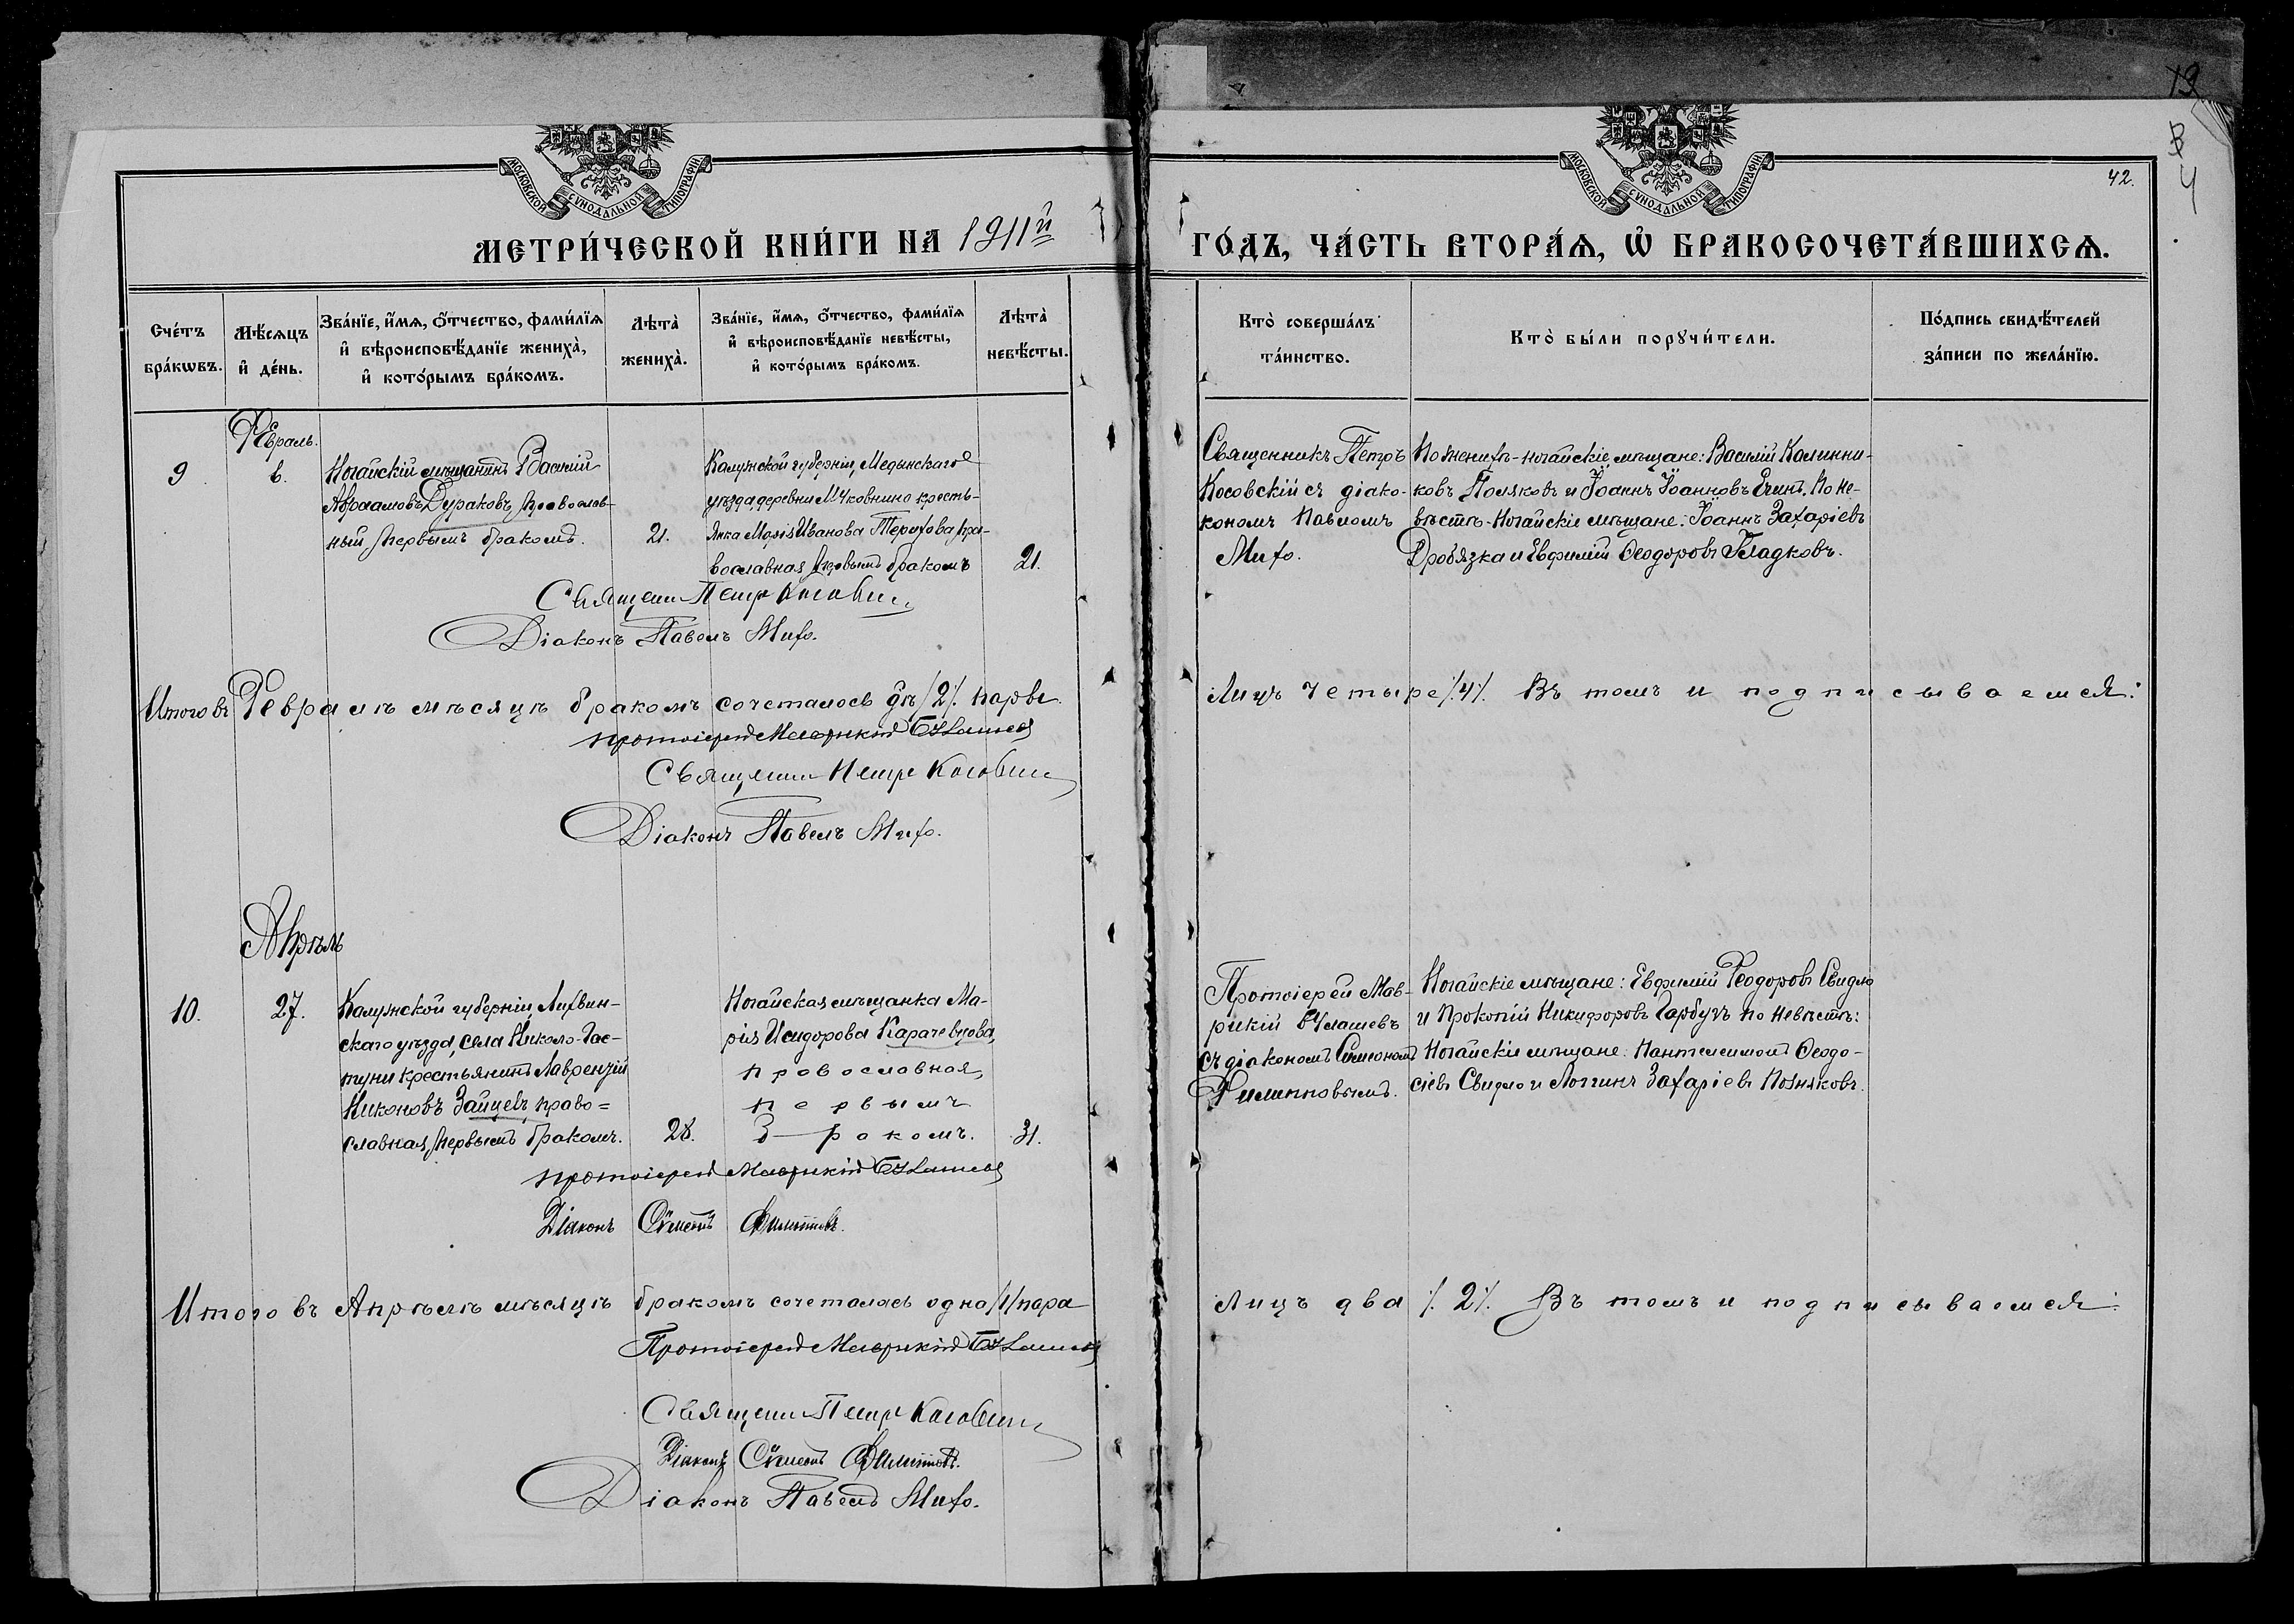 19
3
4
42.
МОСКОВСКОЙ СѴНОДАЛЬНОЙ ТИПОГРАФІИ
МОСКОВСКОЙ СѴНОДАЛЬНОЙ ТИПОГРАФІИ
МЕТРИ́ЧЕСКОЙ КНИ́ГИ НА 1911й
ГО́ДЪ, ЧА́СТЬ ВТОРА́Ѧ, Ѡ БРАКОСОЧЕТА́ВШИХСѦ.
Сче́тъ бра́кѡвъ.
Мѣ́сѧцъ и де́нь.
Зва́нїе, и́мѧ, о́тчество, фами́лїѧ и вѣроисповѣ́данїе жениха̀, и кото́рымъ бра́комъ.
Лѣта̀ жениха̀.
Зва́нїе, и́мѧ, о́тчество, фами́лїѧ и вѣроисповѣ́данїе невѣ́сты, и кото́рымъ бра́комъ.
Лѣта̀ невѣ́сты.
Кто̀ соверша́лъ та́инство.
Кто̀ бы́ли порꙋчи́тели.
По́дпись свидѣ́телей за́писи по жела́нїю.
Февраль.
9
6.
Ногайскій мѣщанинъ Василій
Авраамовъ Дураковъ, православ-
ный, первымъ бракомъ.
21.
Калужской губерніи, Медынскаго
уѣзда, деревни Мчковнино кресть-
янка Марія Иванова Терихова, пра-
вославная, первымъ бракомъ
21.
Священникъ Петръ
Косовскій съ діако-
кономъ Павломъ
Михо.
По женихѣ - ногайскіе мѣщане: Василій Калинни-
ковъ Поляковъ и Іоаннъ Іоанновъ Ечинъ. По не-
вѣстѣ - Ногайскіе мѣщане: Іоаннъ Захаріевъ
Дробязка и Евфимій Ѳеодоровъ Гладковъ.
Священ. Петръ Косовскій
Діаконъ Павелъ Михо.
Итого въ Февралѣ мѣсяцѣ бракомъ сочеталось двѣ /2/. пары.
Лицъ четыре /4/. Въ томъ и подписываемся:
Протоіерей Маврикій Булашевъ
Священ. Петръ Косовскій
Діаконъ Павелъ Михо.
Апрѣль
10.
27.
Калужской губерніи, Лихвин-
скаго уѣзда, села Николо-Гас-
туни крестьянинъ Лаврентій
Никоновъ Зайцевъ, право=
славная, первымъ бракомъ.
28.
Ногайская мѣщанка Ма-
рія Исидорова Карачевцова,
православная,
первымъ
б-ракомъ.
31.
Протоіерей Мав-
рикій Булашевъ
съ діакономъ Симеономъ
Филипповымъ.
Ногайскіе мѣщане: Евфимій Феодоровъ Свидло
и Прокопій Никифоровъ Гарбузъ по невѣстѣ:
Ногайскіе мѣщане: Пантелеимонъ Ѳеодо-
сіевъ Свидло и Логгинъ Захаріевъ Позняковъ.
Протоіерей Маврикій Булашевъ
Діаконъ Сѵмеонъ Филипповъ.
Итого въ Апрѣлѣ мѣсяцѣ бракомъ сочеталась одна /1/ пара
Лицъ два /2/. Въ томъ и подписываемся:
Протоіерей Маврикій Булашевъ
Священ. Петръ Косовскій
Діаконъ Сѵмеонъ Филипповъ.
Діаконъ Павелъ Михо.